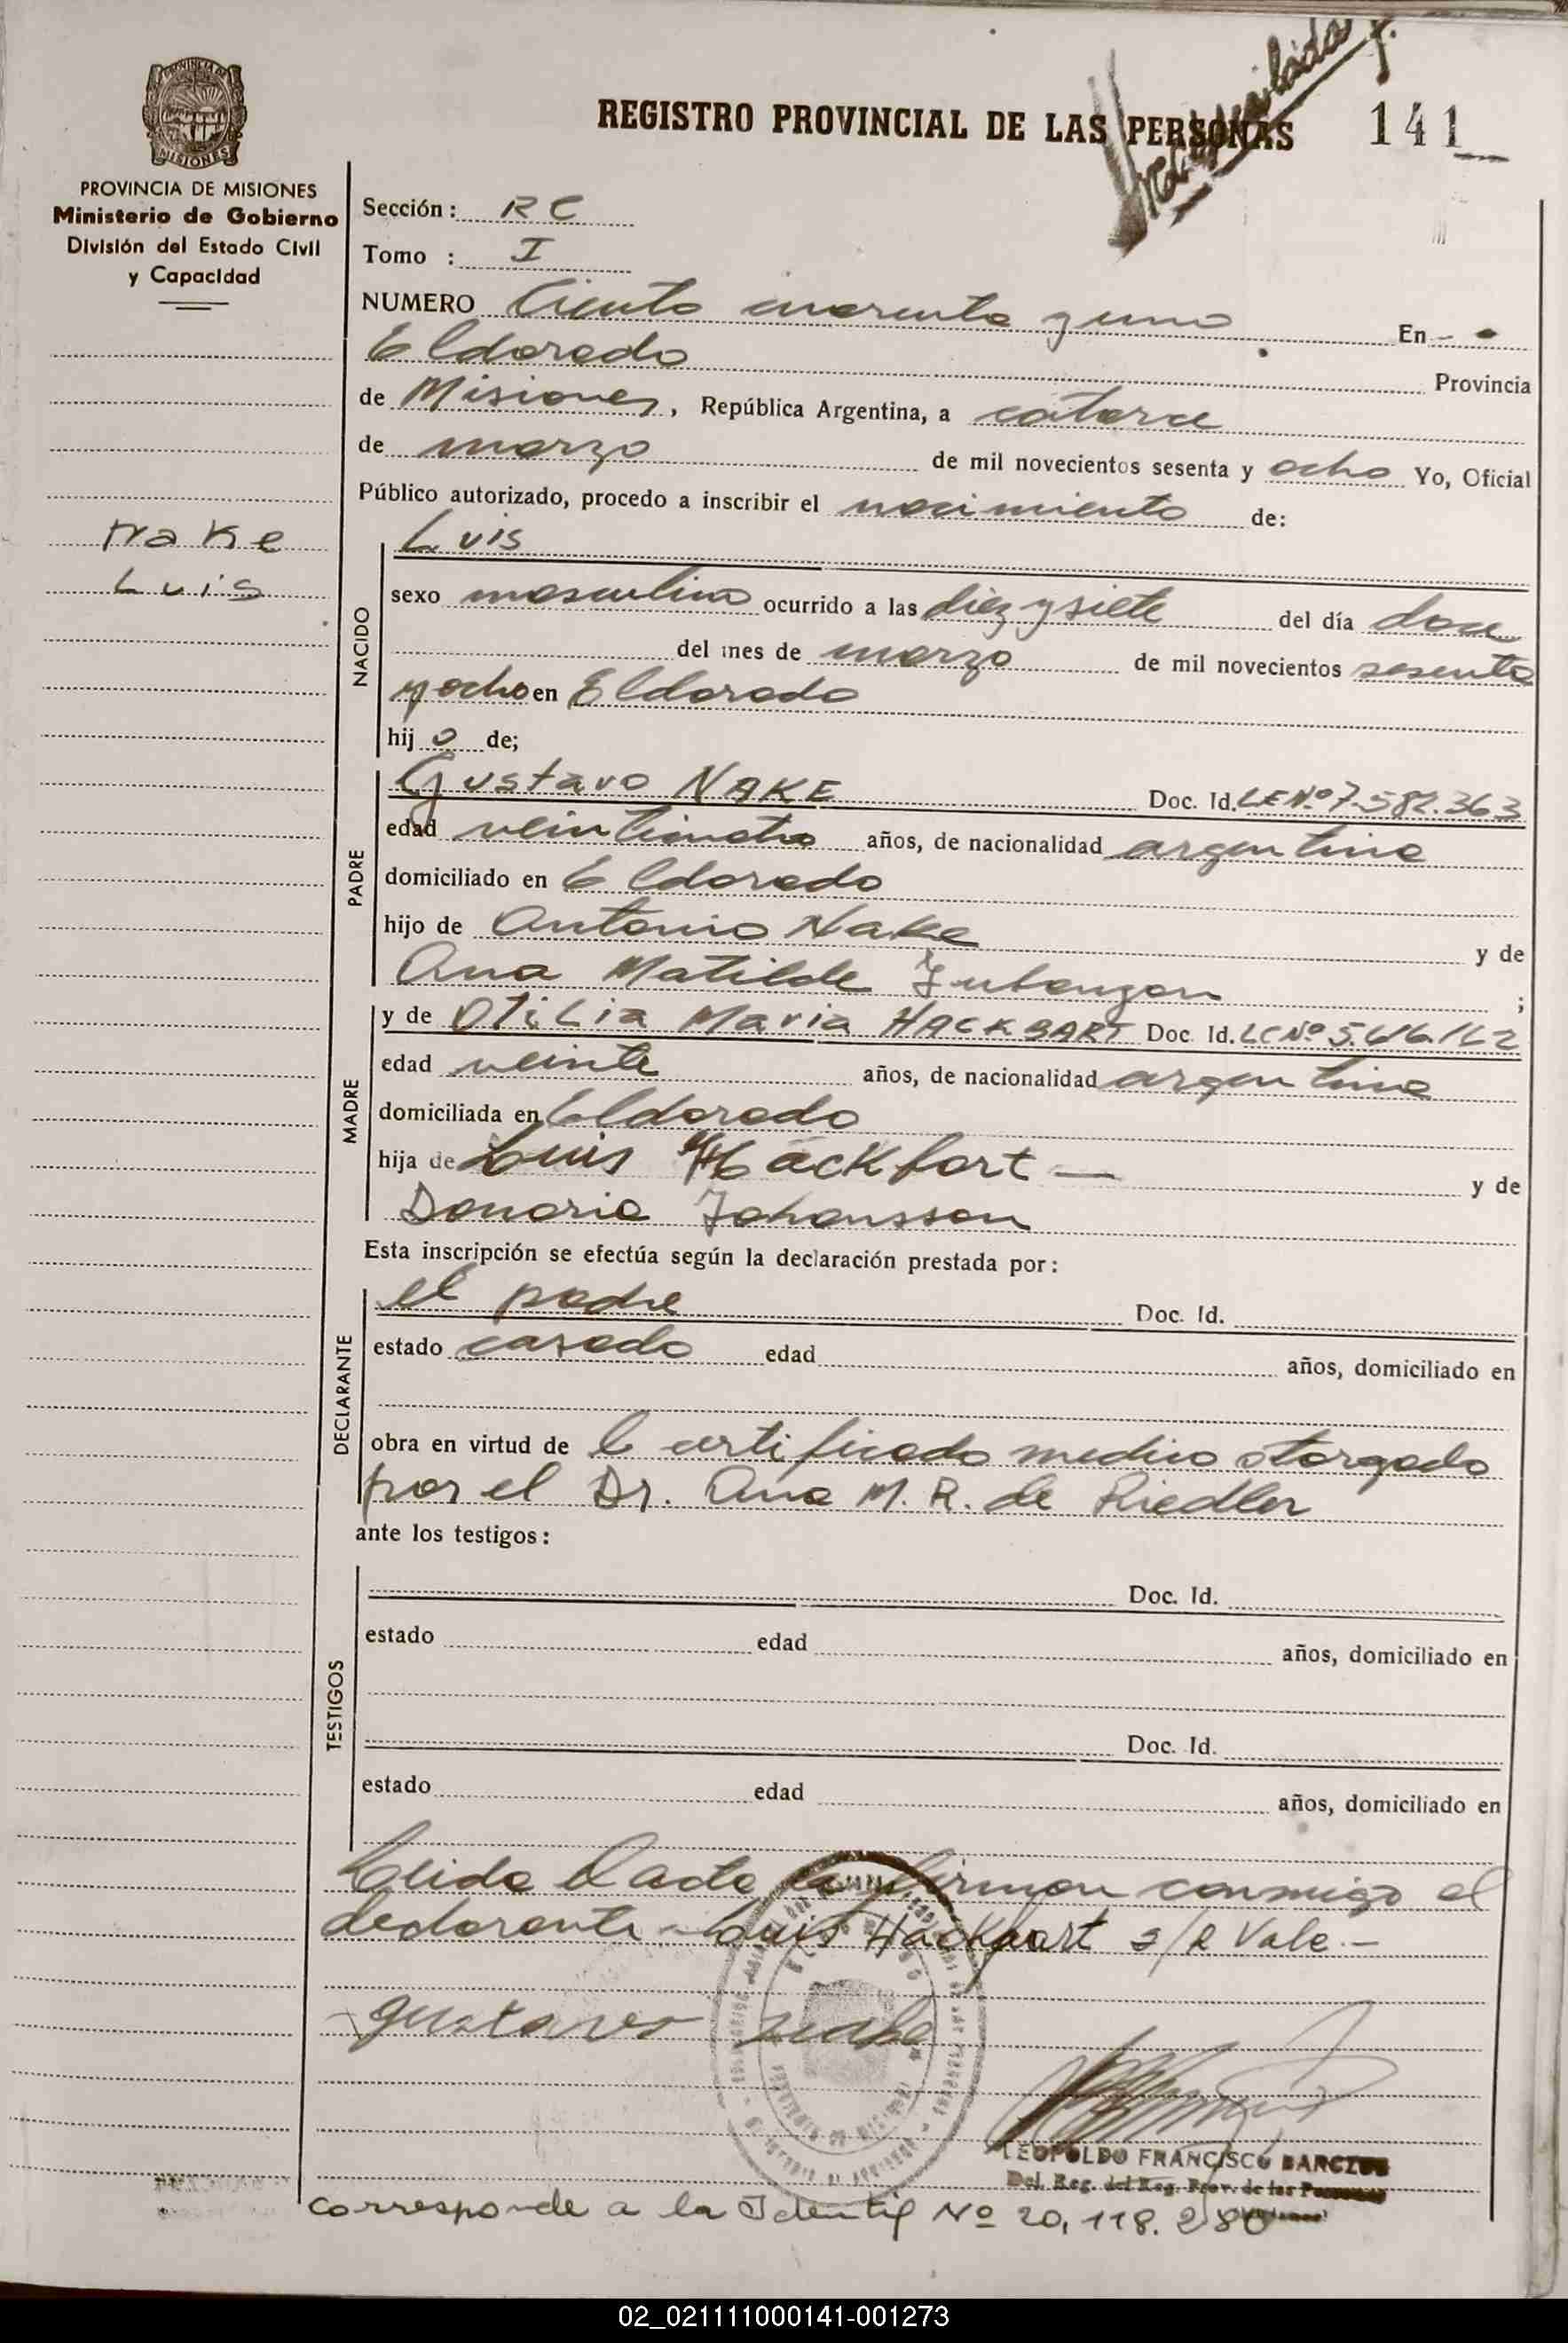 REGISTRO PROVINCIAL DE LAS PERSONAS 141
PROVINCIA DE MISIONES
PROVINCIA DE MISIONES
Ministerio de Gobierno
División del Estado Civil
y Capacidad
Sección: RC
Tomo : I
NUMERO Ciento cuarenta y uno En
Eldorado Provincia
de Misiones, República Argentina, a catorce
de marzo de mil novecientos sesenta y ocho Yo, Oficial
Público autorizado, procedo a inscribir el nacimiento de:
Nake
Luis
NACIDO
Luis
sexo masculino ocurrido a las diez y siete del día doce
del mes de marzo de mil novecientos sesenta
y ocho en Eldorado
hijo de;
PADRE
Gustavo NAKE Doc. Id. LE Nº 7.582.363
edad veinticuatro años, de nacionalidad argentina
domiciliado en Eldorado
hijo de Antonio Nake y de
Ana Matilde ;
MADRE
y de Otilia Maria HACKBART Doc. Id. LC Nº
edad veinte años, de nacionalidad argentina
domiciliada en Eldorado
hija de Luis y de
Johansson
Esta inscripción se efectúa según la declaración prestada por:
DECLARANTE
el padre Doc. Id.
estado casado edad años, domiciliado en
obra en virtud de el certificado medico otorgado
por el Dr. Ana M. R. de Riedler
ante los testigos:
TESTIGOS
Doc. Id.
estado edad años, domiciliado en
Doc. Id.
estado edad años, domiciliado en
Leida el acta la firman conmigo el
declarante - Luis s/R Vale.-
Gustavo Nake
LEOPOLDO FRANCISCO
Del. Reg. del Reg. Prov. de las Personas
corresponde a la Identif Nº 20.118.280
02_021111000141-001273